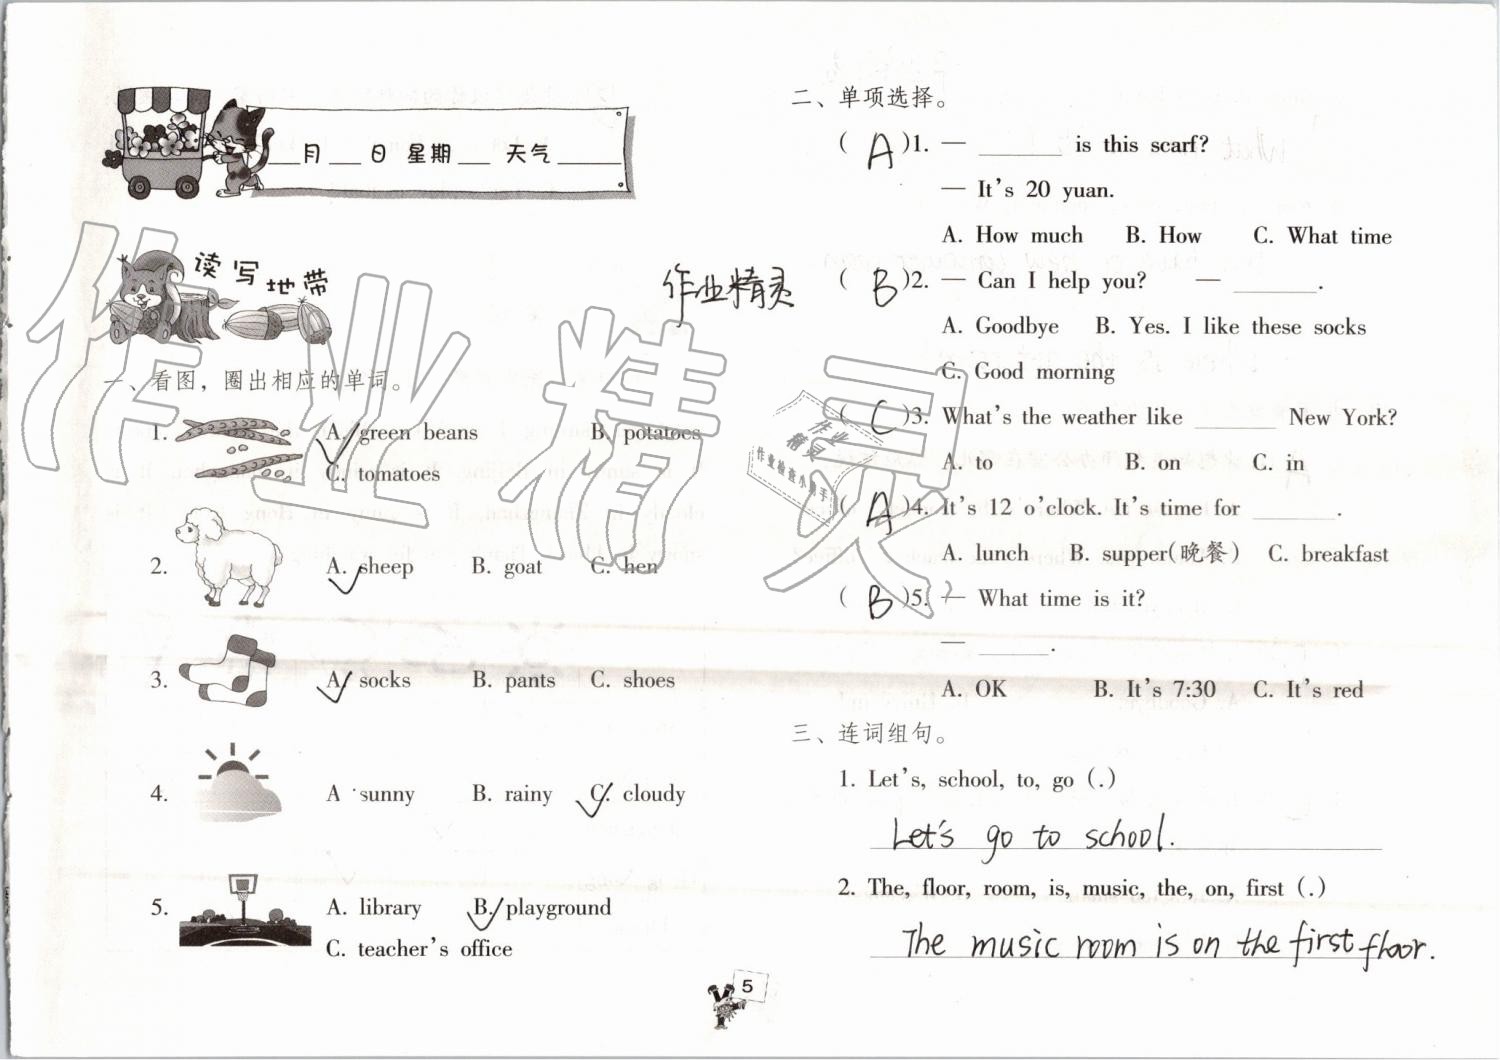 ___月___日 星期___ 天气______
读写地带
一、看图，圈出相应的单词。
1. A. green beans B. potatoes
C. tomatoes
2. A. sheep B. goat C. hen
3. A. socks B. pants C. shoes
4. A sunny B. rainy C. cloudy
5. A. library B. playground
C. teacher's office
作业精灵
作业精灵
作业
精灵
作业检查小助手
二、单项选择。
( A )1. — ________ is this scarf?
— It's 20 yuan.
A. How much B. How C. What time
( B )2. — Can I help you? — ________.
A. Goodbye B. Yes. I like these socks
C. Good morning
( C )3. What's the weather like ________ New York?
A. to B. on C. in
( A )4. It's 12 o'clock. It's time for ________.
A. lunch B. supper(晚餐) C. breakfast
( B )5. — What time is it?
— _______.
A. OK B. It's 7:30 C. It's red
三、连词组句。
1. Let's, school, to, go (.)
Let's go to school.
2. The, floor, room, is, music, the, on, first (.)
The music room is on the first floor.
5